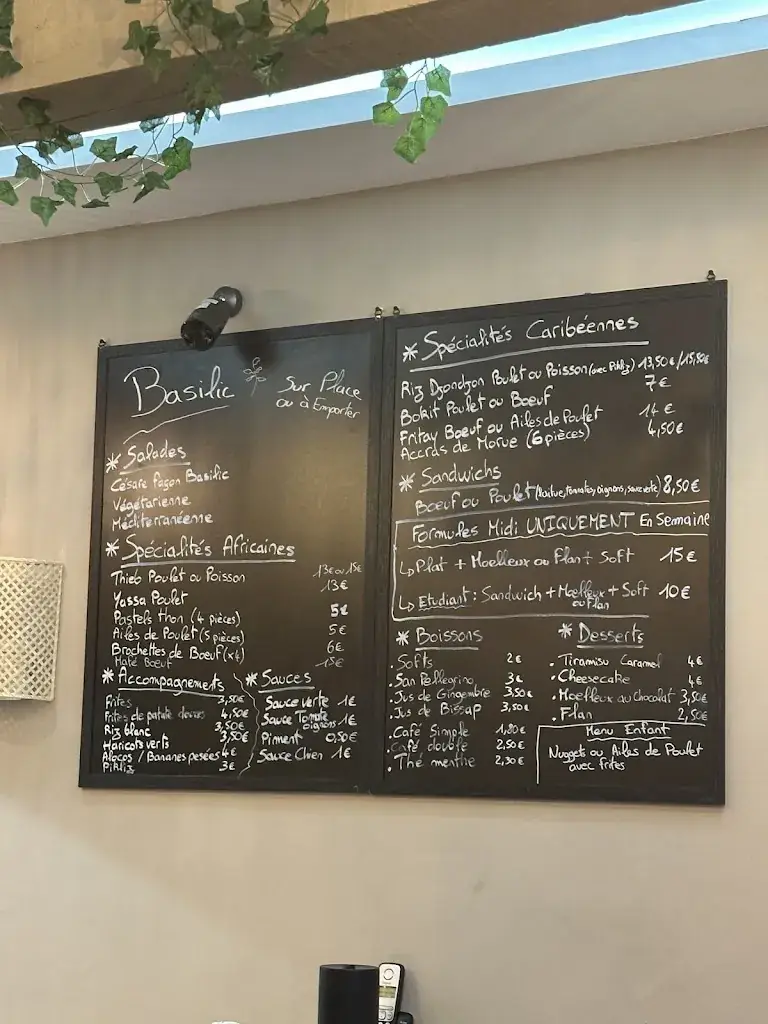 Basilic
Sur Place
ou à Emporter
* Salades
César façon Basilic
Végétarienne
Méditerranéenne
* Spécialités Africaines
Thieb Poulet ou Poisson 13€ ou 15€
Yassa Poulet 13€
Pastels thon (4 pièces) 5€
Ailes de Poulet (5 pièces) 5€
Brochettes de Boeuf (x4) 6€
Mafé Boeuf 15€
* Accompagnements
Frites 3,50€
Frites de patate douces 4,50€
Riz blanc 3,50€
Haricots verts 3,50€
Alocos / Bananes pesées 4€
Pikliz 3€
* Sauces
Sauce verte 1€
Sauce Tomate oignons 1€
Piment 0,50€
Sauce Chien 1€
* Spécialités Caribéennes
Riz Djondjon Poulet ou Poisson (avec Pikliz) 13,50€/15,50€
Bokit Poulet ou Boeuf 7€
Fritay Boeuf ou Ailes de Poulet 14€
Accras de Morue (6 pièces) 4,50€
* Sandwichs
Boeuf ou Poulet (laitue, tomates, oignons, sauce verte) 8,50€
Formules Midi UNIQUEMENT En Semaine
Plat + Moelleux ou Flan + Soft 15€
Etudiant : Sandwich + Moelleux ou Flan + Soft 10€
* Boissons
. Softs 2€
. San Pellegrino 3€
. Jus de Gingembre 3,50€
. Jus de Bissap 3,50€
. Café Simple 1,80€
. Café double 2,50€
. Thé menthe 2,30€
* Desserts
. Tiramisu Caramel 4€
. Cheesecake 4€
. Moelleux au Chocolat 3,50€
. Flan 2,50€
Menu Enfant
Nuggets ou Ailes de Poulet
avec frites